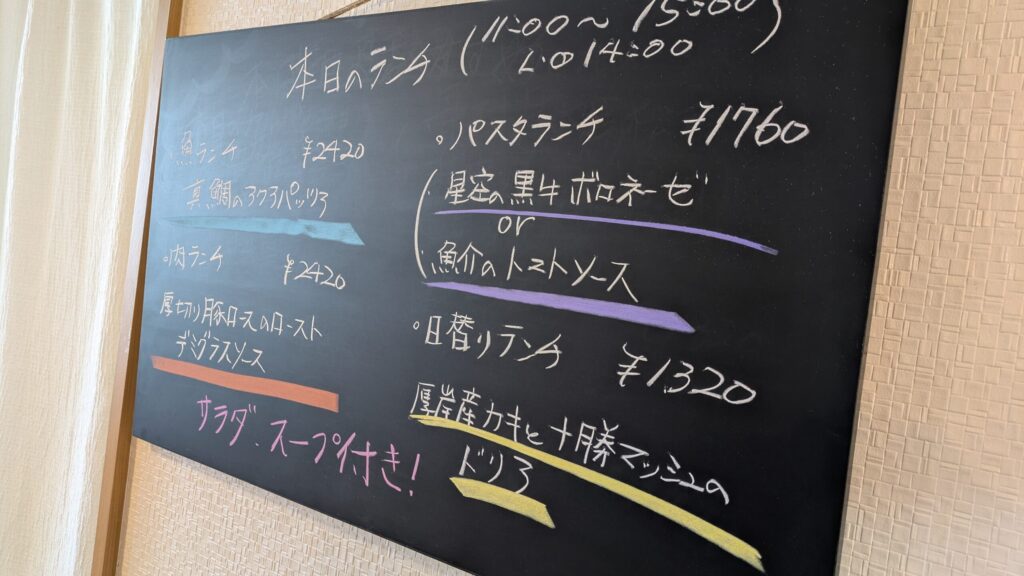 本日のランチ (11:00～15:00)
L.O 14:00
魚ランチ ¥2420
真鯛のアクアパッツァ
。肉ランチ ¥2420
厚切り豚ロースのロースト
デミグラスソース
サラダ、スープ付き!
。パスタランチ ¥1760
黒牛ボロネーゼ
or
魚介のトマトソース
。日替りランチ ¥1320
厚岸産カキと十勝マッシュの
ドリア